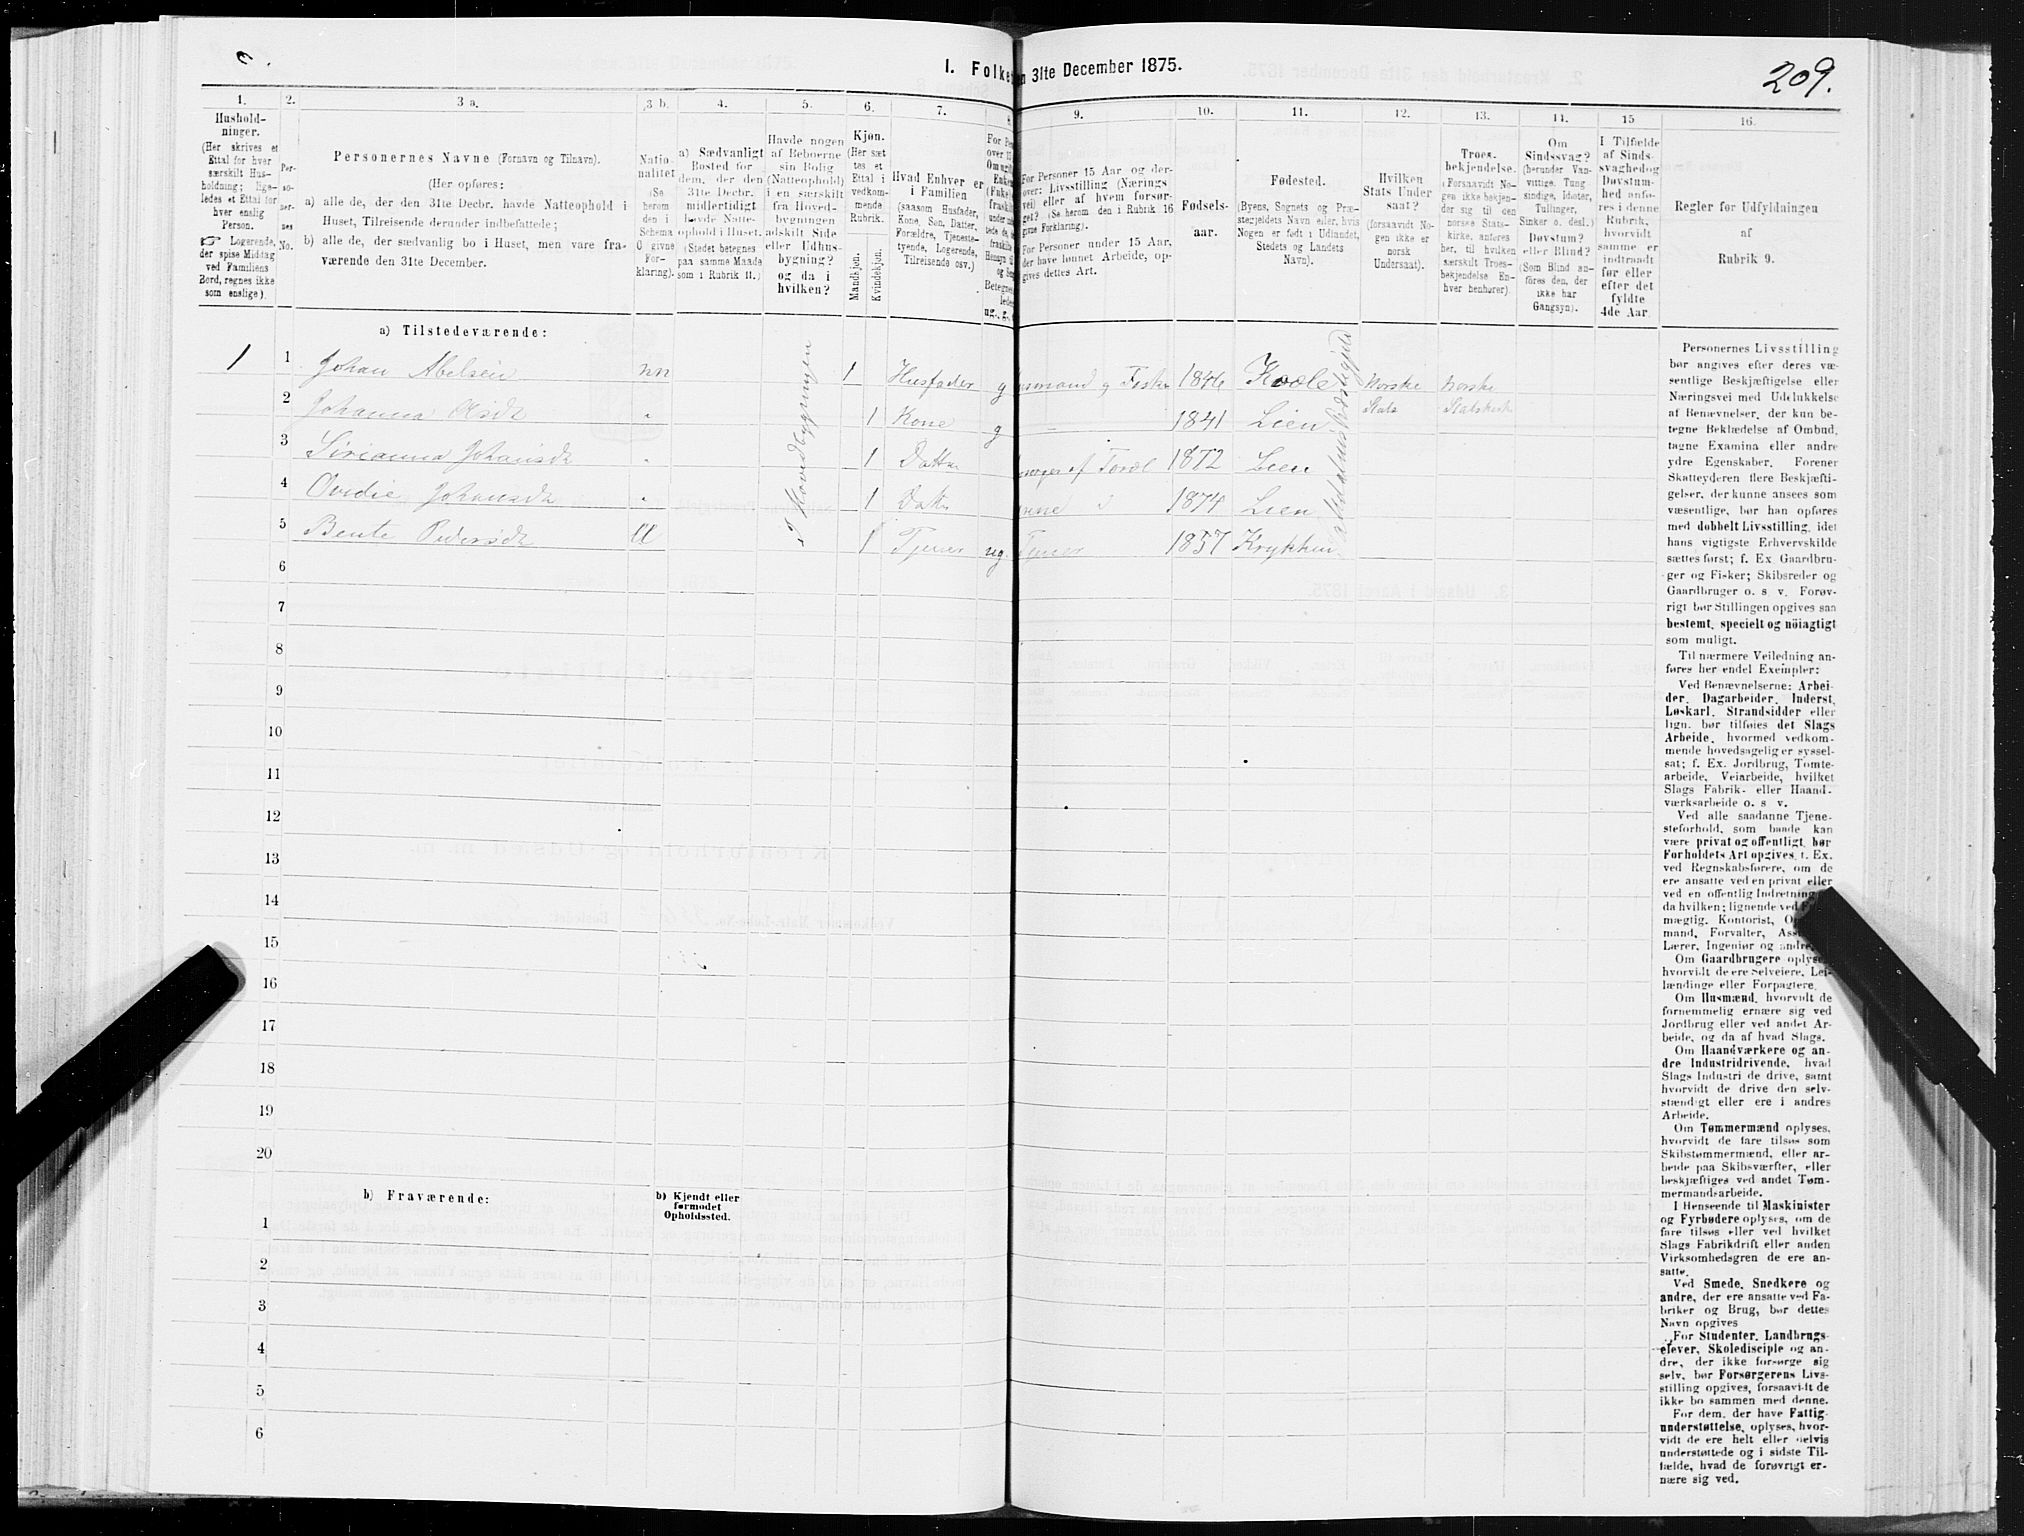 209.
I. Folke
en 31te December 1875.
1.
2.
3 a.
3 b.
4.
5.
6.
7.
8
9.
10.
11.
12.
13.
14.
15
16.
Hushold-
ninger.
(Her skrives et
Ettal for hver
særskilt Hus-
holdning; lige-
ledes et Ettal for
hver enslig
Person.
☞ Logerende,
der spise Middag
ved Familiens
Bord, regnes ikke
som enslige).
Per-
so-
ner-
nes
No.
Personernes Navne (Fornavn og Tilnavn).
(Her opføres:
a) alle de, der den 31te Decbr. havde Natteophold i
Huset, Tilreisende derunder indbefattede;
b) alle de, der sædvanlig bo i Huset, men vare fra-
værende den 31te December.
Natio-
nalitet
(Se
herom
den i
Schema
O givne
For-
klaring).
a) Sædvanligt
Bosted for
dem, der den
31te Decbr.
midlertidigt
havde Natte-
ophold i Huset.
(Stedet betegnes
paa samme Maade
som i Rubrik 11.)
Havde nogen
af Beboerne
sin Bolig
(Natteophold)
i en særskilt
fra Hoved-
bygningen
adskilt Side
eller Udhus-
bygning?
og da i
hvilken?
Kjøn.
(Her sæt
tes et
Ettal i
vedkom-
mende
Rubrik.
Mandkjøn.
Kvindekjøn.
Hvad Enhver er
i Familien
(saasom Husfader,
Kone, Søn, Datter,
Forældre, Tjeneste-
tyende, Logerende,
Tilreisende osv.)
For Personer 15 Aar og der-
over: Livsstilling (Nærings
vei) eller af hvem forsør-
get? (Se herom i Rubrik 16
givne Forklaring).
For Personer under 15 Aar,
der have lønnet Arbeide, op-
gives dettes Art.
Fødsels-
aar.
Fødested.
(Byens, Sognets og Præ-
stegjeldets Navn eller, hvis
Nogen er født i Udlandet,
Stedets og Landets
Navn).
Hvilken
Stats Under
saat?
(forsaavidt No-
gen ikke er
norsk
Undersaat).
Troes-
bekjendelse.
(Forsaavidt No-
gen ikke bekjen-
der sig til den
norske Stats-
kirke, anføres
her, til hvilken
særskilt Troes-
bekjendelse En-
hver henhører).
Om
Sindssvag?
(herunder Van-
vittige, Tung
sindige, Idioter,
Tullinger,
Sinker o. desl.)
Døvstum?
eller Blind?
(Som Blind an-
føres den, der
ikke har
Gangsyn).
I Tilfælde
af Sinds-
svaghed og
Døvstum-
hed anfø-
res i denne
Rubrik,
hvorvidt
samme er
indtraadt
før eller
efter det
fyldte
4de Aar.
Regler for Udfyldningen
af
Rubrik 9.
a) Tilstedeværende:
1
1 Johan Abelsen nn 1 Husfader g usmand g Fisker 1846 Kvæle Norske Norske
2 Johanna Olsdt " 1 Kone g – 1841 Lien Stats Statskirk
3 Sirianna Johansdt " 1 Datter orges af Foræl 1872 Lien
4 Ovidie Johansdt " 1 Datter 1874 Lien
5 Bente Pedersdt 1 Tjener ug Tjener 1857 Krykken
I Hovedbygningen
6
7
8
9
10
11
12
13
14
15
16
17
18
19
20
b) Fraværende:
b) Kjendt eller
formodet
Opholdssted.
1
2
3
4
5
6
Personernes Livsstilling
bør angives efter deres væ-
sentlige Beskjæftigelse eller
Næringsvei med Udelukkelse
af Benævnelser, der kun be-
tegne Beklædelse af Ombud,
tagne Examina eller andre
ydre Egenskaber. Forener
Skatteyderen flere Beskjæfti-
gelser, der kunne ansees som
væsentlige, bør han opføres
med dobbelt Livsstilling, idet
hans vigtigste Erhvervskilde
sættes først; f. Ex. Gaardbru-
ger og Fisker; Skibsreder og
Gaardbruger o. s v. Forøv-
rigt bør Stillingen opgives saa
bestemt, specielt og nöiagtigt
som muligt.
Til nærmere Veiledning an-
føres her endel Exempler:
Ved Benævnelserne: Arbei-
der, Dagarbeider, Inderst,
Løskarl, Strandsidder eller
lign. bør tilføies det Slags
Arbeide, hvormed vedkom-
mende hovedsagelig er syssel-
sat; f. Ex. Jordbrug, Tomte-
arbeide, Veiarbeide, hvilket
Slags Fabrik- eller Haand-
værksarbeide o. s v.
Ved alle saadanne Tjene-
steforhold, som baade kan
være privat og offentligt, bør
Forholdets Art opgives, f. Ex.
ved Regnskabsførere, om de
ere ansatte ved en privat eller
ved en offentlig Indretning og
da hvilken; lignende ved
mægtig, Kontorist,
mand, Forvalter,
Lærer, Ingeniør og andre.
Om Gaardbrugere oplyses,
hvorvidt de ere Selveiere, Lei-
lændinge eller Forpagtere.
Om Husmænd, hvorvidt de
fornemmelig ernære sig ved
Jordbrug eller ved andet Ar-
beide, og da af hvad Slags.
Om Haandværkere og an-
dre Industridrivende, hvad
Slags Industri de drive, samt
hvorvidt de drive den selv-
stændigt eller ere i andres
Arbeide.
Om Tømmermænd oplyses,
hvorvidt de fare tilsøs som
Skibstømmermænd, eller ar-
beide paa Skibsværfter, eller
beskjæftiges ved andet Tøm-
mermandsarbeide.
I Henseende til Maskinister
og Fyrbødere oplyses, om de
fare tilsøs eller ved hvilket
Slags Fabrikdrift eller anden
Virksomhedsgren de ere an-
satte.
Ved Smede, Snedkere og
andre, der ere ansatte ved Fa-
briker og Brug, bør dettes
Navn opgives
For Studenter, Landbrugs-
elever, Skoledisciple og an-
dre, der ikke forsørge sig
selv, bør Forsørgerens Livs-
stilling opgives, forsaavidt de
ikke bo sammen med denne.
For dem, der have Fattig-
understøttelse, oplyses, hvor-
vidt de ere helt eller delvis
understøttede og i sidste Til-
fælde, hvad de forøvrigt er-
nære sig ved.